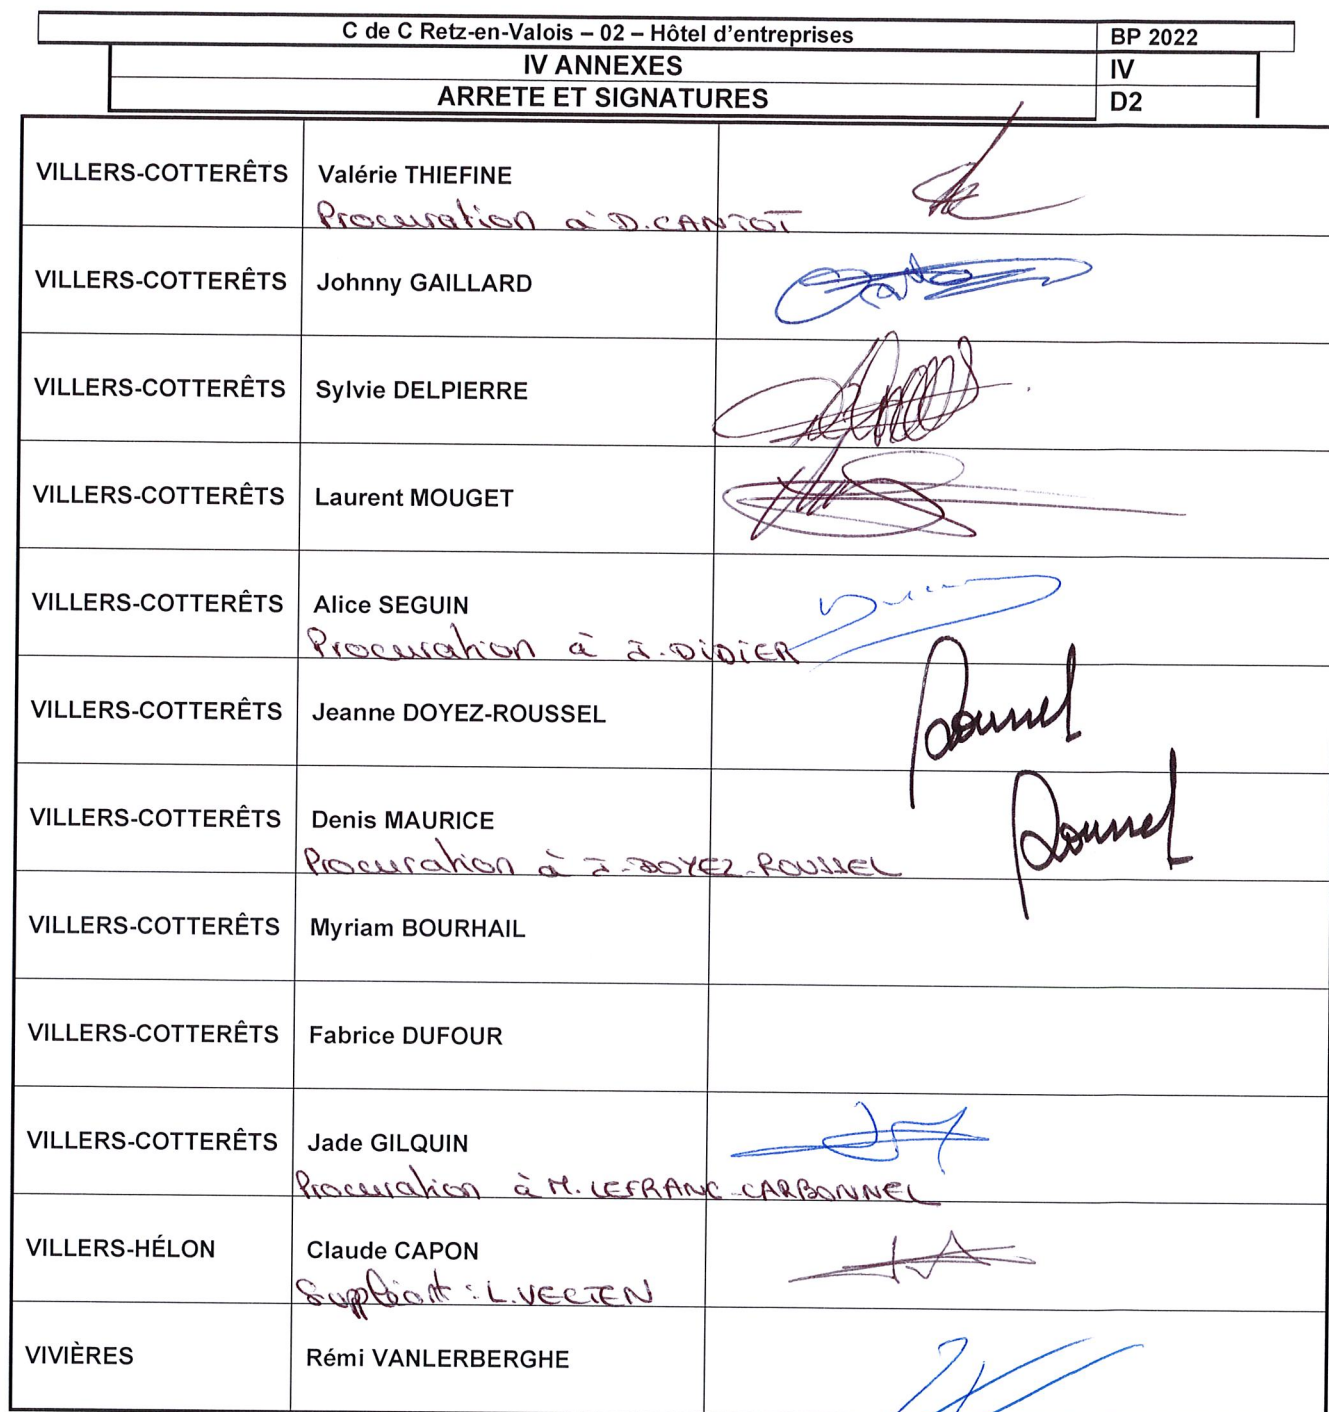 C de C Retz-en-Valois – 02 – Hôtel d'entreprises BP 2022
IV ANNEXES IV
ARRETE ET SIGNATURES D2
VILLERS-COTTERÊTS Valérie THIEFINE
Procuration à D.CANTOT
VILLERS-COTTERÊTS Johnny GAILLARD
VILLERS-COTTERÊTS Sylvie DELPIERRE
VILLERS-COTTERÊTS Laurent MOUGET
VILLERS-COTTERÊTS Alice SEGUIN
Procuration à J.DIDIER
VILLERS-COTTERÊTS Jeanne DOYEZ-ROUSSEL Roussel
VILLERS-COTTERÊTS Denis MAURICE Roussel
Procuration à J-DOYEZ-ROUSSEL
VILLERS-COTTERÊTS Myriam BOURHAIL
VILLERS-COTTERÊTS Fabrice DUFOUR
VILLERS-COTTERÊTS Jade GILQUIN
Procuration à M. LEFRANC-CARBONNEL
VILLERS-HÉLON Claude CAPON
Suppléant : L.VECTEN
VIVIÈRES Rémi VANLERBERGHE